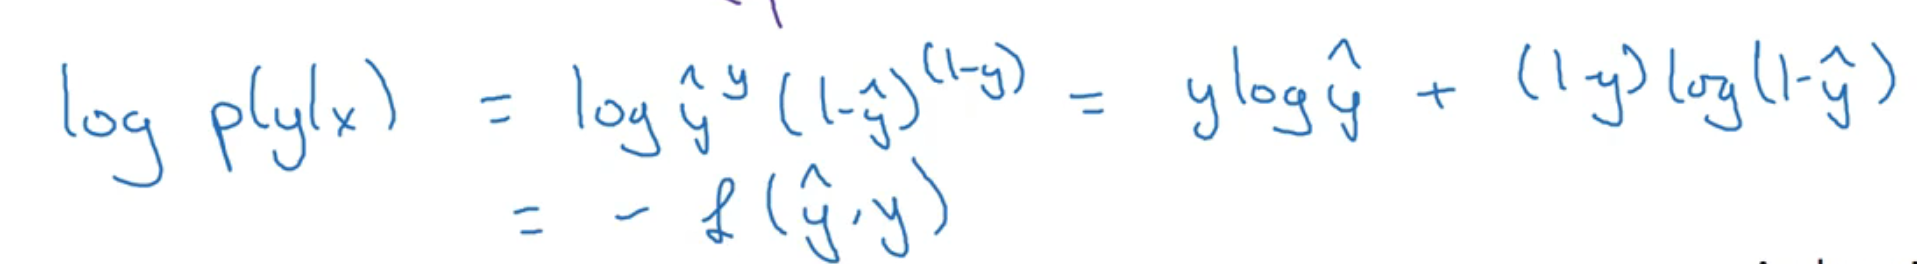 log p(y|x) = log ŷ^y (1-ŷ)^(1-y) = y log ŷ + (1-y) log(1-ŷ)
= - ℒ(ŷ,y)